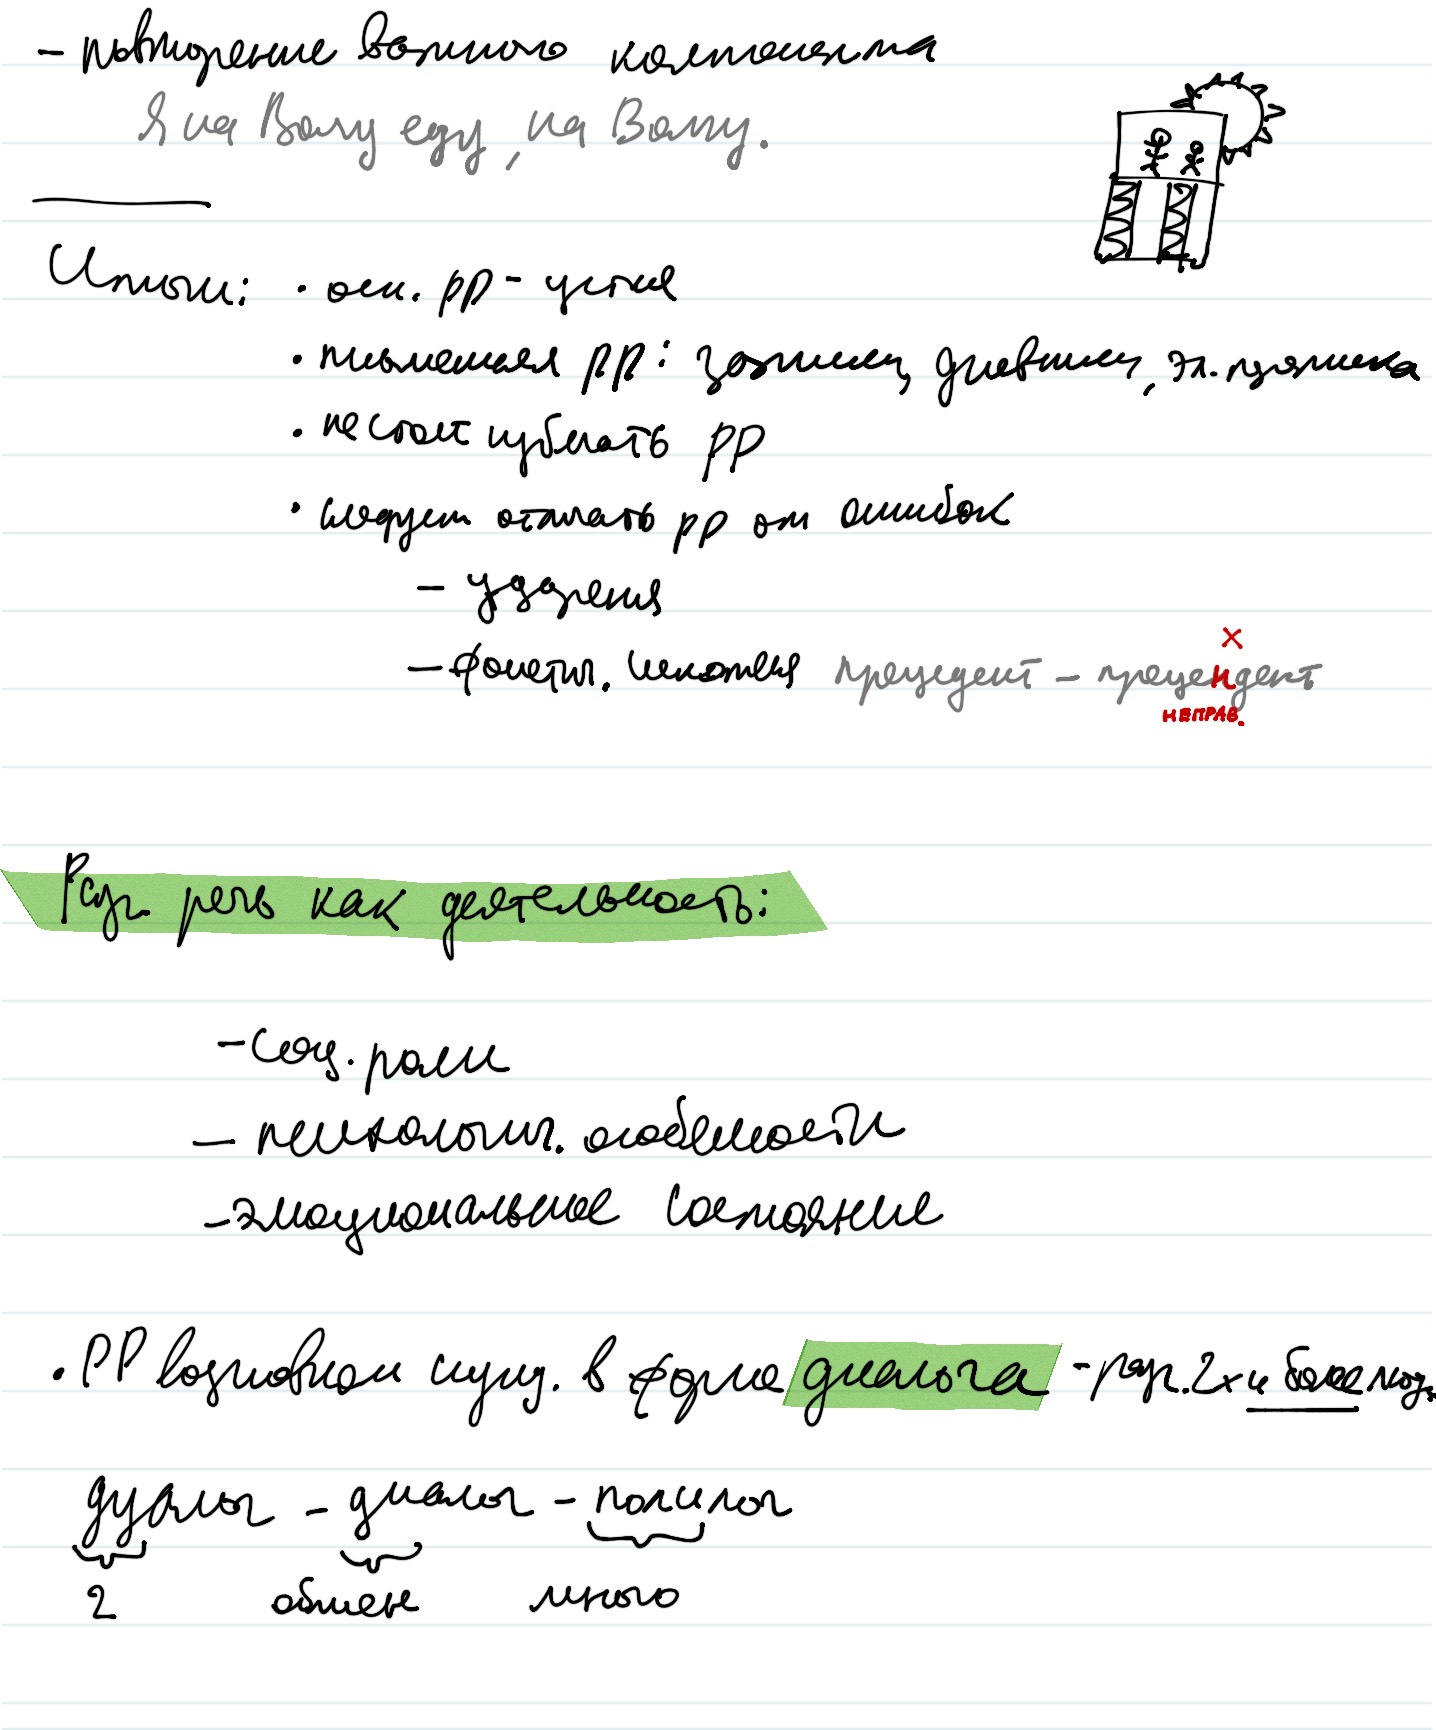 - повторение важного компонента
Я на Волгу еду, на Волгу.
Итоги: • осн. РР - устная
• письменная РР: записки, дневники, эл. переписка
• не стоит избегать РР
• следует отличать РР от ошибок
- ударения
- фонетич. искажения прецедент - прецендент
×
НЕПРАВ.
Разг. речь как деятельность:
- соц. роли
- психологич. особенности
- эмоциональное состояние
• РР в основном сущ. в форме диалога - разг. 2х и более люд.
дуалог - диалог - полилог
2 обмен много